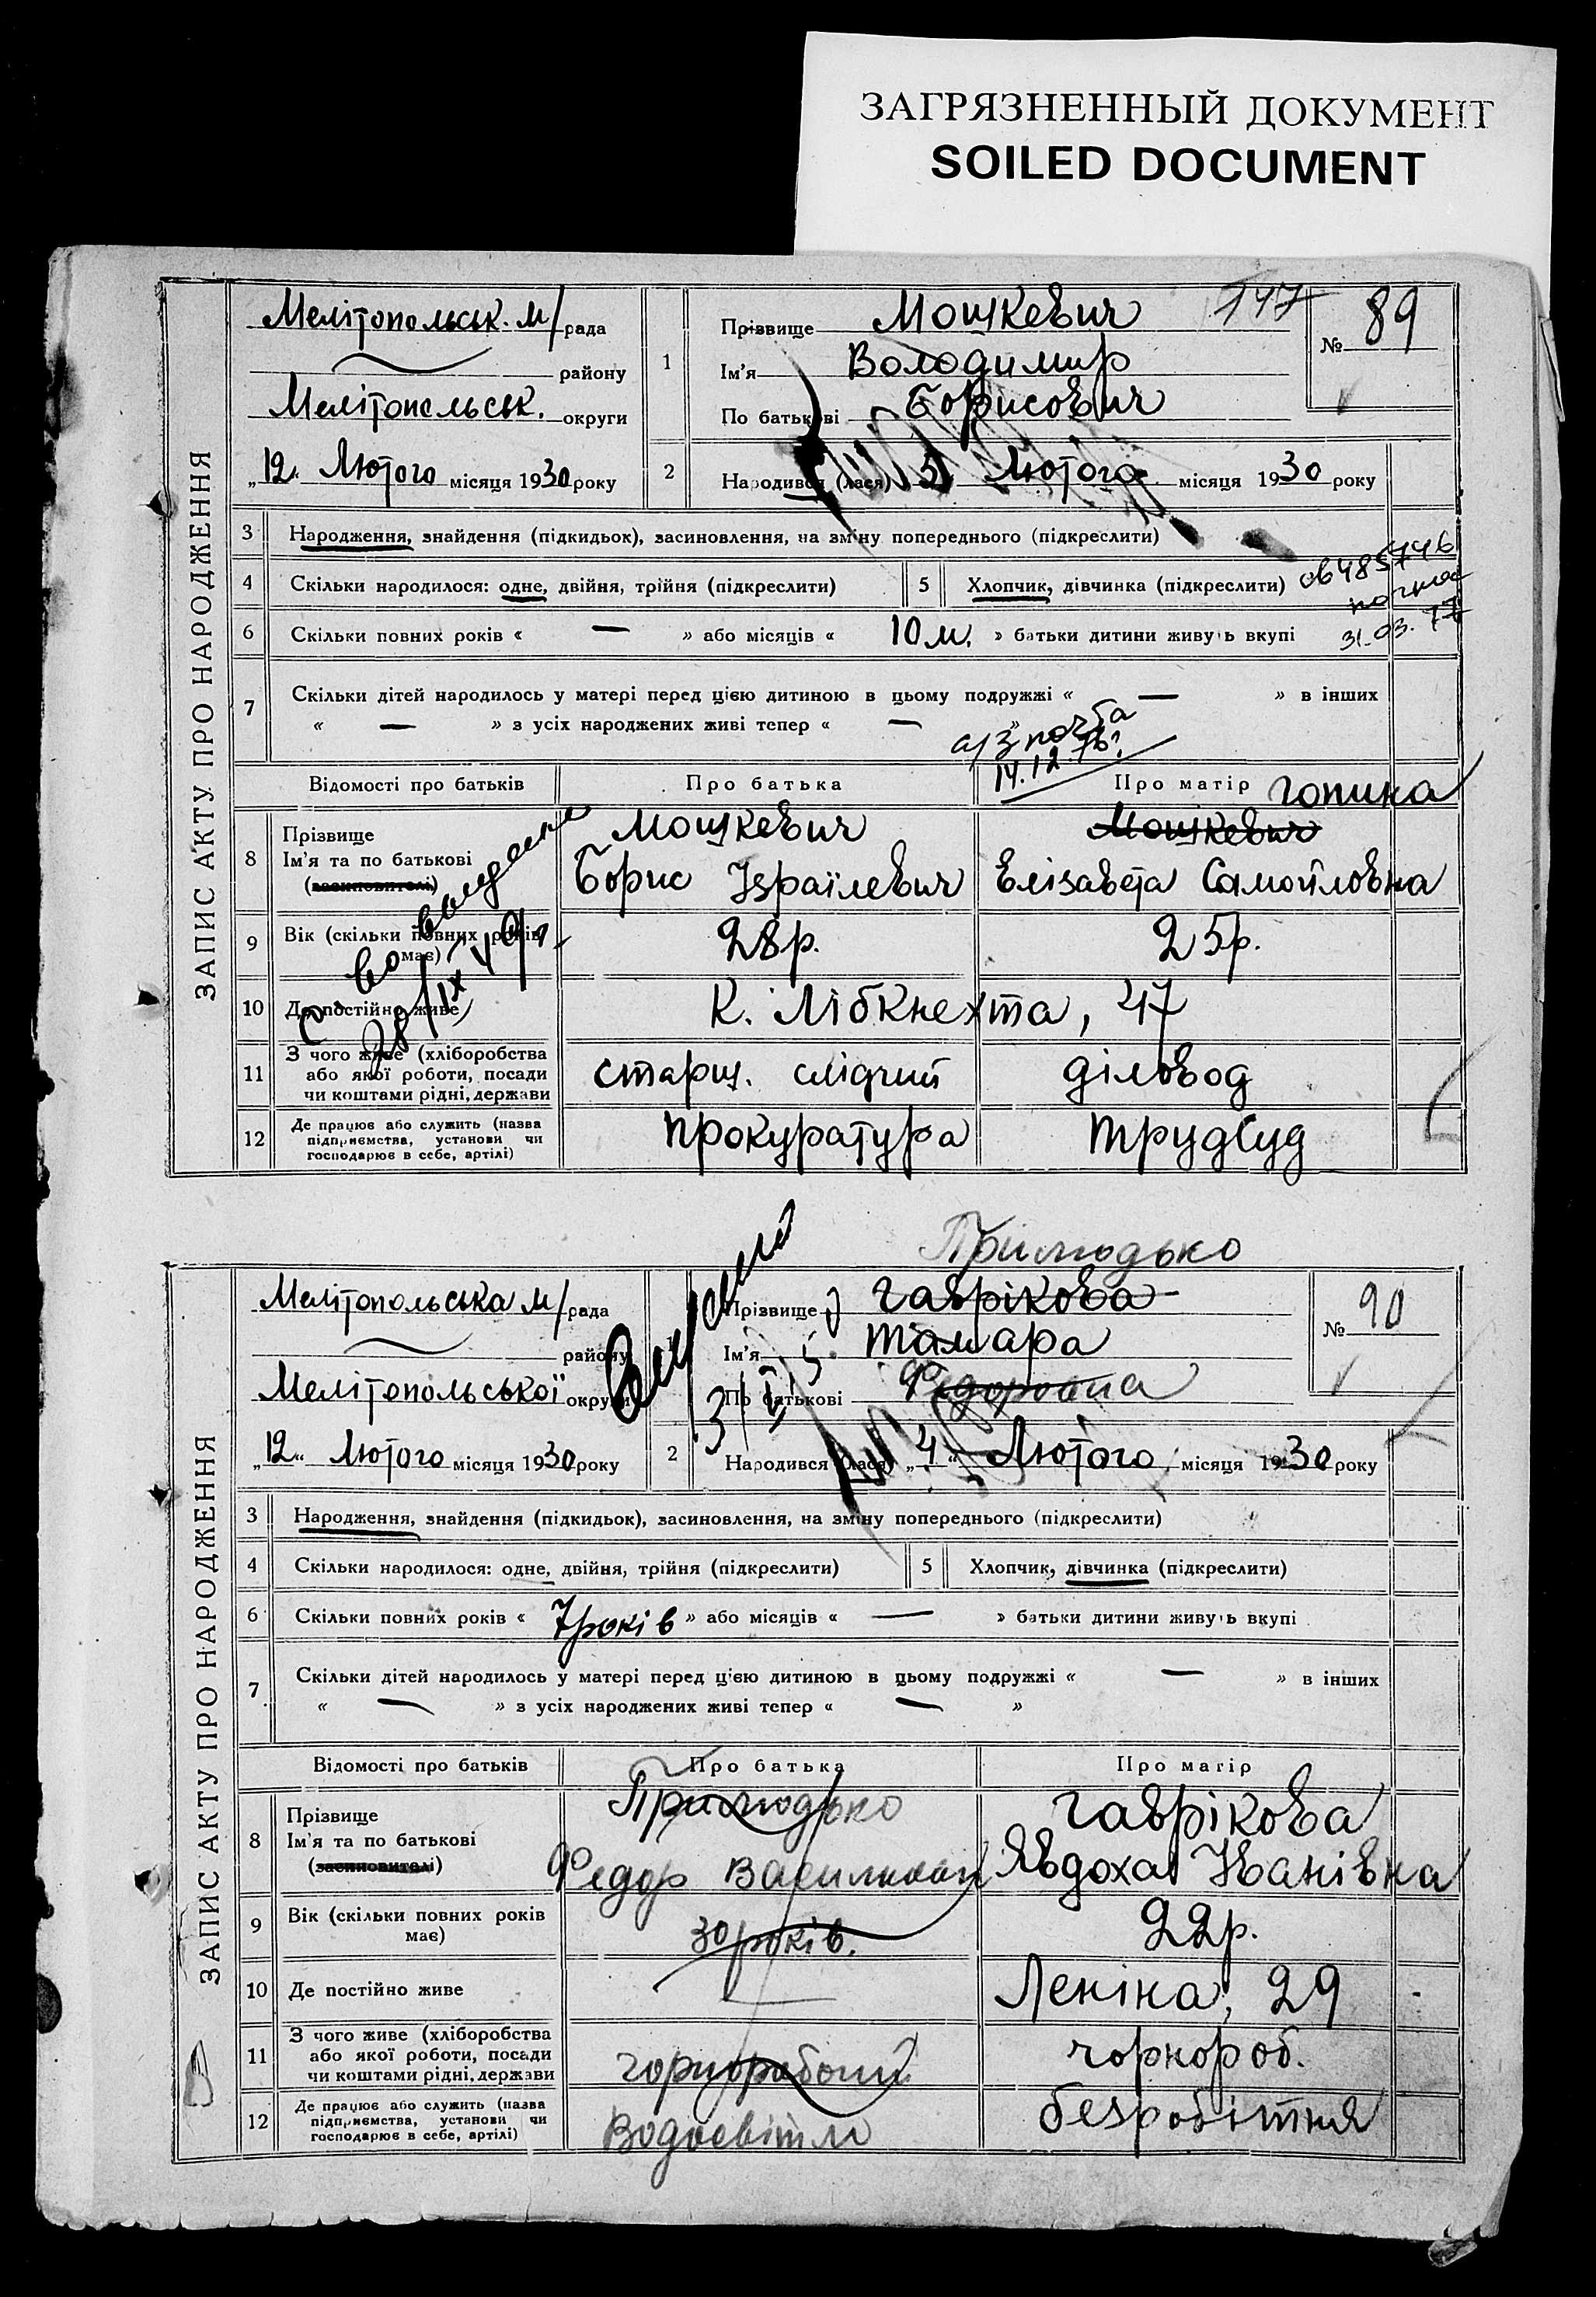 ЗАГРЯЗНЕННЫЙ ДОКУМЕНТ
SOILED DOCUMENT
ЗАПИС АКТУ ПРО НАРОДЖЕННЯ
Мелітопольськ. м/рада
району
Мелітопольськ. округи
„12„ Лютого місяця 1930 року
1
Прізвище Мошкевич
147
№ 89
Ім'я Володимир
По батькові Борисович
2
Народився (лася) 5 Лютого місяця 1930 року
3 Народження, знайдення (підкидьок), засиновлення, на зміну попереднього (підкреслити)
4 Скільки народилося: одне, двійня, трійня (підкреслити)
5 Хлопчик, дівчинка (підкреслити)
31.03.77
6 Скільки повних років « — » або місяців « 10 м. » батьки дитини живуть вкупі
7 Скільки дітей народилось у матері перед цією дитиною в цьому подружжі « — » в інших
« — » з усіх народжених живі тепер « — »
14.12.76г.
Відомості про батьків
Про батька
Про матір
Гопина
8 Прізвище
Ім'я та по батькові
(засиновителі)
Мошкевич
Борис Ізраїлевич
Мошкевич
Елізавета Самойловна
9 Вік (скільки повних років має)
28р.
25р.
10 Де постійно живе
К. Лібкнехта, 47
11 З чого живе (хліборобства
або якої роботи, посади
чи коштами рідні, держави
старш. слідчий
діловод
12 Де працює або служить (назва
підприємства, установи чи
господарює в себе, артілі)
прокуратура
трудсуд
ЗАПИС АКТУ ПРО НАРОДЖЕННЯ
Примодько
Мелітопольська м/рада
району
Мелітопольської округи
„12„ Лютого місяця 1930 року
Прізвище Гаврікова
№ 90
Ім'я Тамара
По батькові Федоровна
2
Народився (лася) „4„ Лютого місяця 1930 року
3 Народження, знайдення (підкидьок), засиновлення, на зміну попереднього (підкреслити)
4 Скільки народилося: одне, двійня, трійня (підкреслити)
5 Хлопчик, дівчинка (підкреслити)
6 Скільки повних років « 7 років » або місяців « — » батьки дитини живуть вкупі
7 Скільки дітей народилось у матері перед цією дитиною в цьому подружжі « — » в інших
« — » з усіх народжених живі тепер « — »
Відомості про батьків
Про батька
Про матір
8 Прізвище
Ім'я та по батькові
(засиновителі)
Примодько
Федор Васильович
Гаврікова
Явдоха Іванівна
9 Вік (скільки повних років має)
30 років.
22р.
10 Де постійно живе
—
Леніна, 29
11 З чого живе (хліборобства
або якої роботи, посади
чи коштами рідні, держави
чорнорабочий
чорнороб.
12 Де працює або служить (назва
підприємства, установи чи
господарює в себе, артілі)
Водосвітло
безробітня